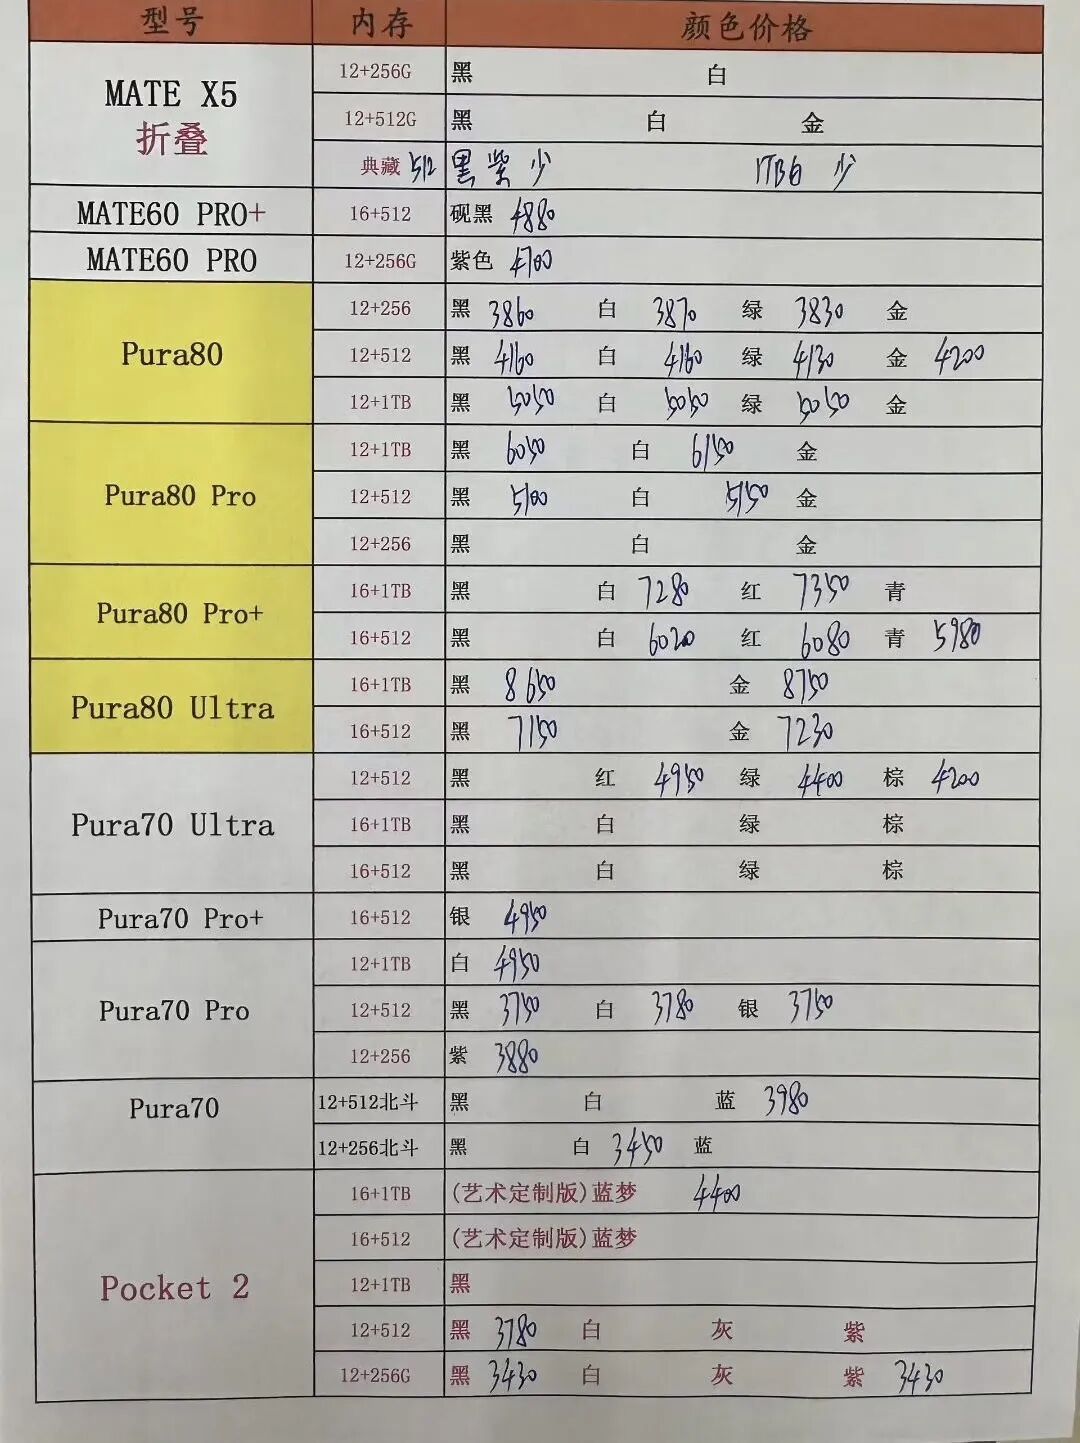 型号 内存 颜色价格
MATE X5 折叠
12+256G 黑 白
12+512G 黑 白 金
典藏 512 黑 紫 少 1TB6 少
MATE60 PRO+ 16+512 砚黑 4880
MATE60 PRO 12+256G 紫色 4700
Pura80
12+256 黑 3860 白 3870 绿 3830 金
12+512 黑 4160 白 4160 绿 4130 金 4200
12+1TB 黑 5050 白 5050 绿 5050 金
Pura80 Pro
12+1TB 黑 6050 白 6150 金
12+512 黑 5100 白 5150 金
12+256 黑 白 金
Pura80 Pro+
16+1TB 黑 白 7280 红 7350 青
16+512 黑 白 6020 红 6080 青 5980
Pura80 Ultra
16+1TB 黑 8650 金 8750
16+512 黑 7150 金 7230
Pura70 Ultra
12+512 黑 红 4950 绿 4400 棕 4200
16+1TB 黑 白 绿 棕
16+512 黑 白 绿 棕
Pura70 Pro+ 16+512 银 4950
Pura70 Pro
12+1TB 白 4950
12+512 黑 3750 白 3780 银 3750
12+256 紫 3880
Pura70
12+512北斗 黑 白 蓝 3980
12+256北斗 黑 白 3450 蓝
Pocket 2
16+1TB (艺术定制版)蓝梦 4400
16+512 (艺术定制版)蓝梦
12+1TB 黑
12+512 黑 3780 白 灰 紫
12+256G 黑 3430 白 灰 紫 3430